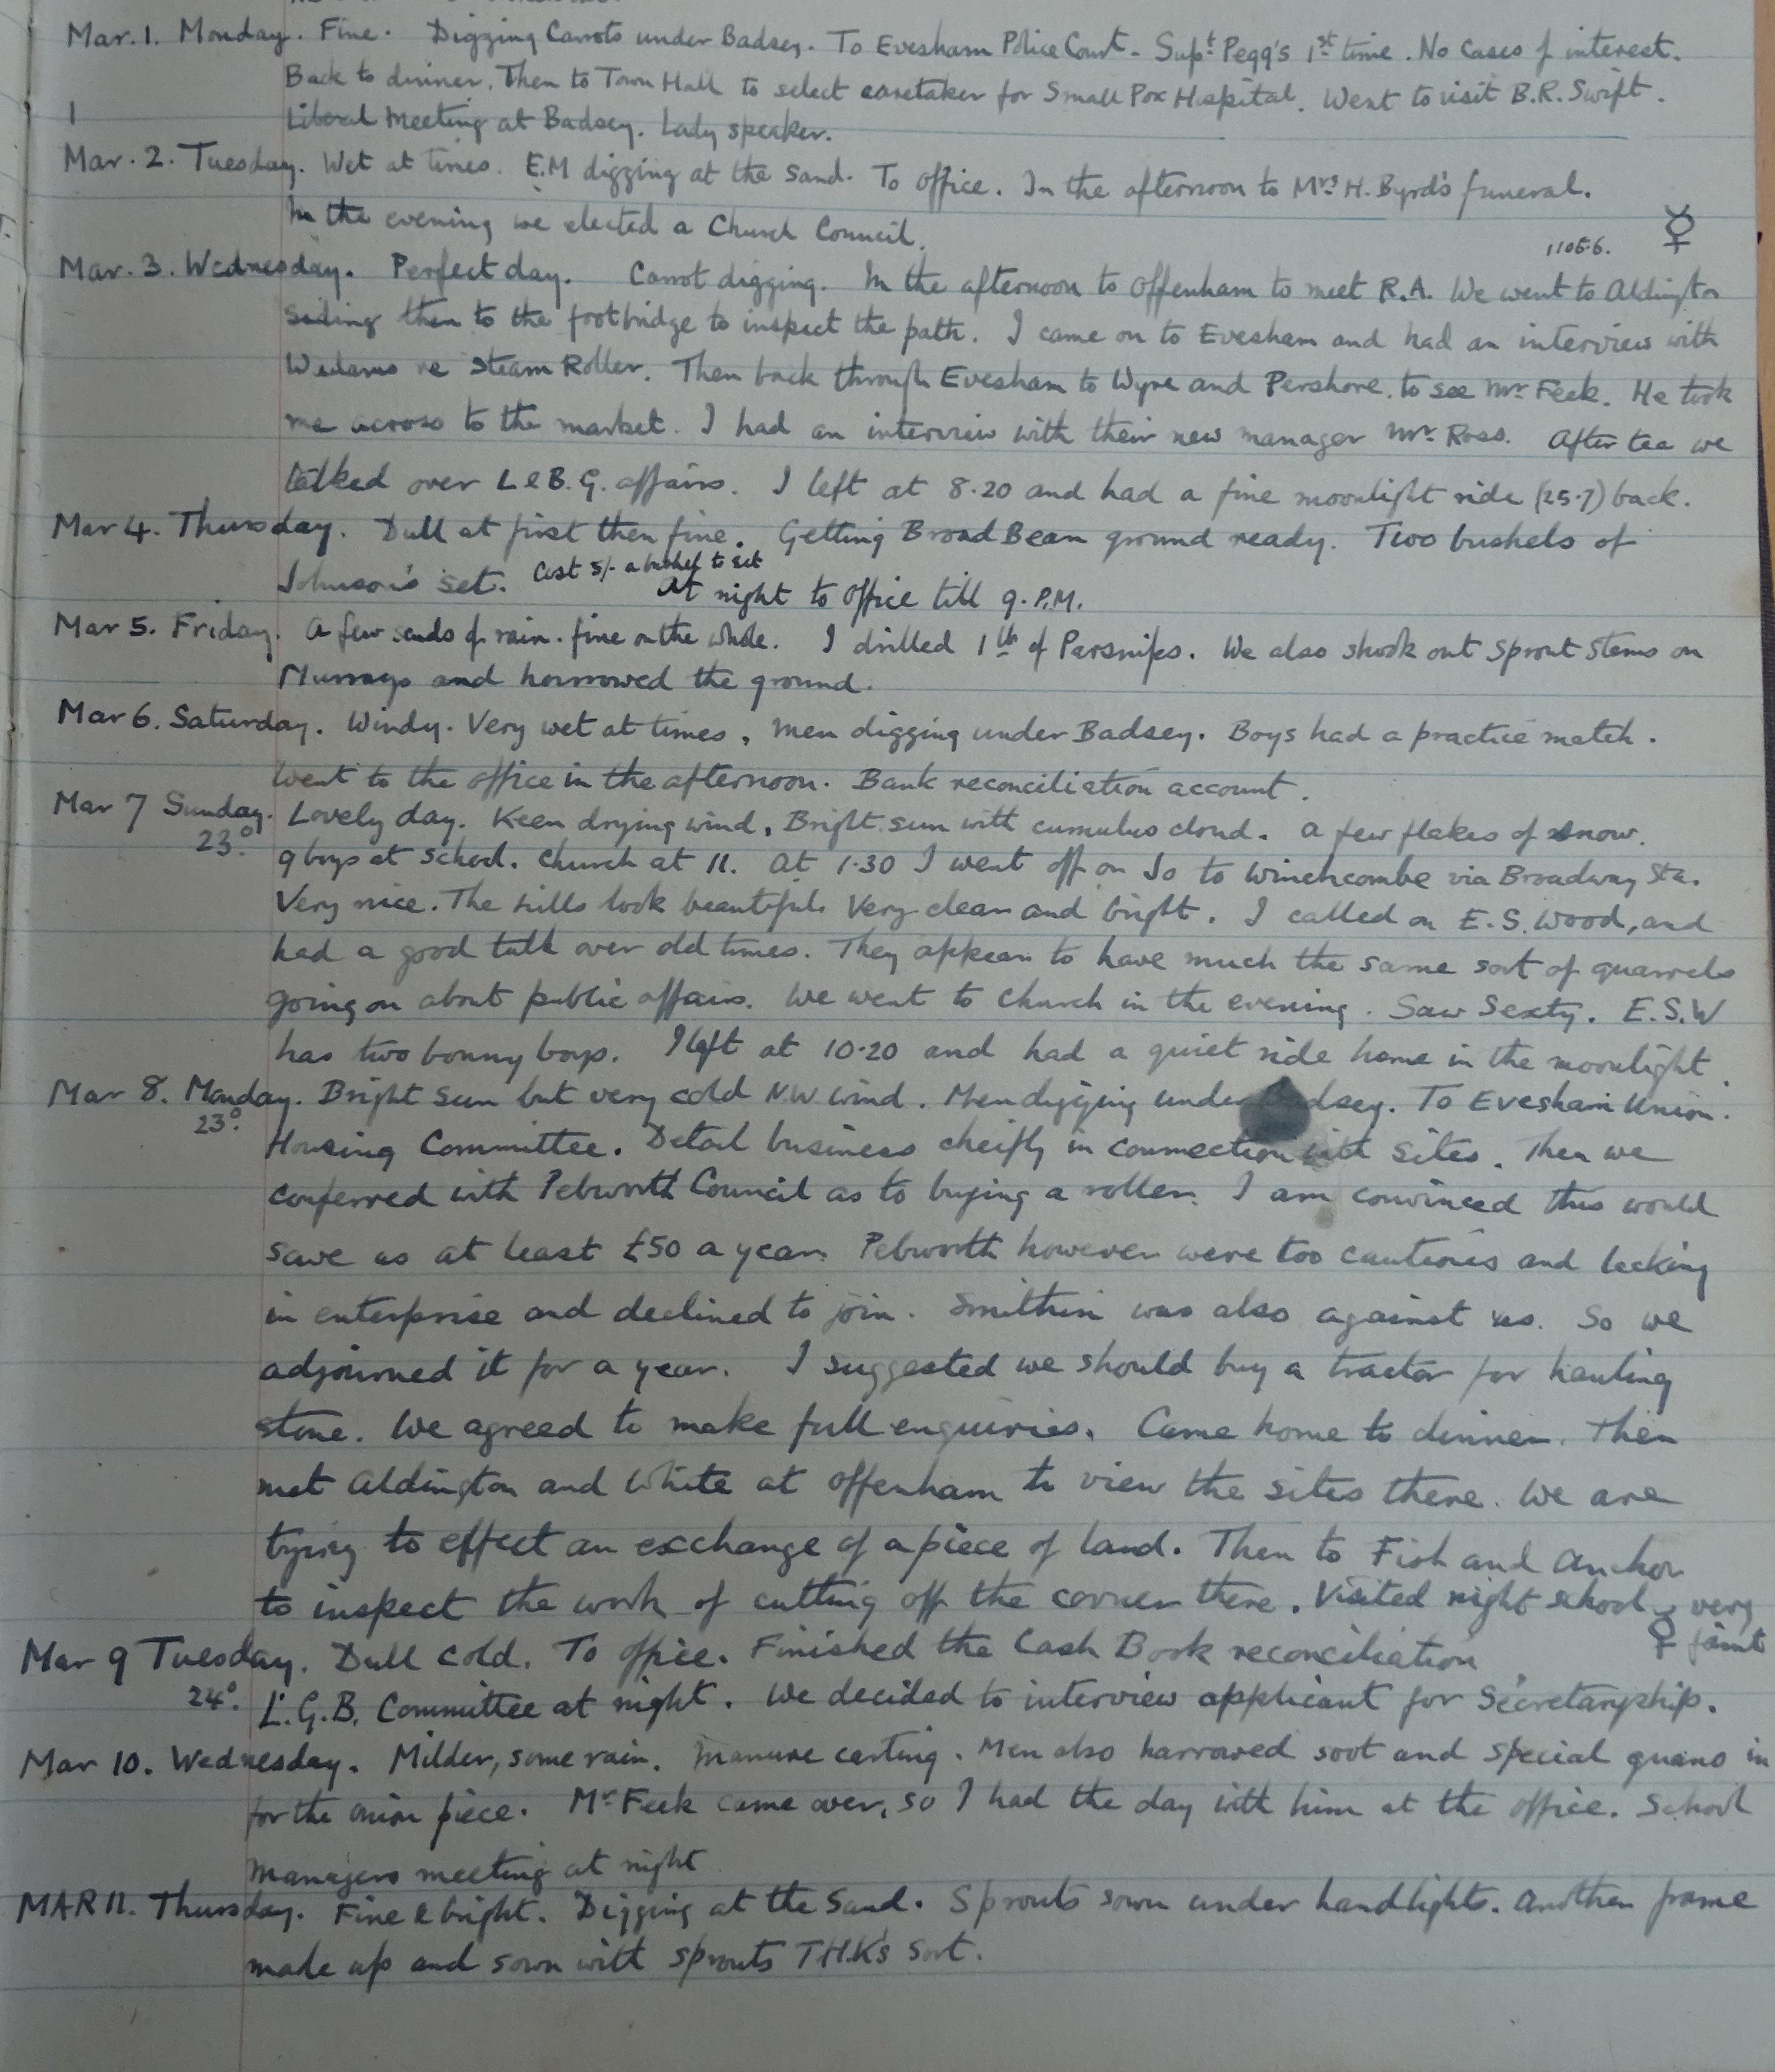 Mar. 1. Monday. Fine. Digging Carrots under Badsey. To Evesham Police Court. Supt. Pegg's 1st time. No Cases of interest.
Back to dinner. Then to Town Hall to select caretaker for Small Pox Hospital. Went to visit B.R. Swift.
Liberal Meeting at Badsey. Lady speaker.
Mar. 2. Tuesday. Wet at times. E.M digging at the Sand. To office. In the afternoon to Mrs H. Byrd's funeral.
In the evening we elected a Church Council.
11056. ☿
Mar. 3. Wednesday. Perfect day. Carrot digging. In the afternoon to Offenham to meet R.A. We went to Aldington
Siding then to the footbridge to inspect the path. I came on to Evesham and had an interview with
re Steam Roller. Then back through Evesham to Wyre and Pershore. to see Mr Feek. He took
me across to the market. I had an interview with their new manager Mr. Ross. After tea we
talked over L & B. G. affairs. I left at 8.20 and had a fine moonlight ride (25.7) back.
Mar 4. Thursday. Dull at first then fine. Getting Broad Bean ground ready. Two bushels of
Johnson's set. Cost 5/- a bushel to set At night to office till 9. P.M.
Mar 5. Friday. A few scuds of rain. fine on the whole. I drilled 1 lb of Parsnips. We also shook out Sprout Stems on
Murrays and harrowed the ground.
Mar 6. Saturday. Windy. Very wet at times, men digging under Badsey. Boys had a practice match.
Went to the office in the afternoon. Bank reconciliation account.
Mar 7 Sunday. Lovely day. Keen drying wind, Bright sun with cumulus cloud. A few flakes of snow.
23° 9 boys at school. Church at 11. At 1.30 I went off on Jo to Winchcombe via Broadway Sta.
Very nice. The hills look beautiful. Very clear and bright. I called on E.S. Wood, and
had a good talk over old times. They appear to have much the same sort of quarrels
going on about public affairs. We went to Church in the evening. Saw Sexty. E.S.W
has two bonny boys. I left at 10.20 and had a quiet ride home in the moonlight.
Mar 8. Monday. Bright Sun but very cold N.W wind. Men digging under Badsey. To Evesham Union.
23°. Housing Committee. Detail business cheifly in connection with Sites. Then we
conferred with Pebworth Council as to buying a roller. I am convinced this would
save us at least £50 a year. Pebworth however were too cautious and lacking
in enterprise and declined to join. Smithin was also against us. So we
adjourned it for a year. I suggested we should buy a tractor for hauling
stone. We agreed to make full enquiries. Came home to dinner. Then
met Aldington and White at Offenham to view the sites there. We are
trying to effect an exchange of a piece of land. Then to Fish and Anchor
to inspect the work of cutting off the corner there. Visited night school
☿ very faint
Mar 9 Tuesday. Dull cold. To office. Finished the Cash Book reconciliation.
24°. L.G.B. Committee at night. We decided to interview applicant for Secretaryship.
Mar 10. Wednesday. Milder, some rain. Manure carting. Men also harrowed soot and special guano in
for the onion piece. Mr Feek came over, so I had the day with him at the office. School
Managers meeting at night
MAR 11. Thursday. Fine & bright. Digging at the Sand. Sprouts sown under handlights. Another frame
made up and sown with sprouts T.H.K's Sort.